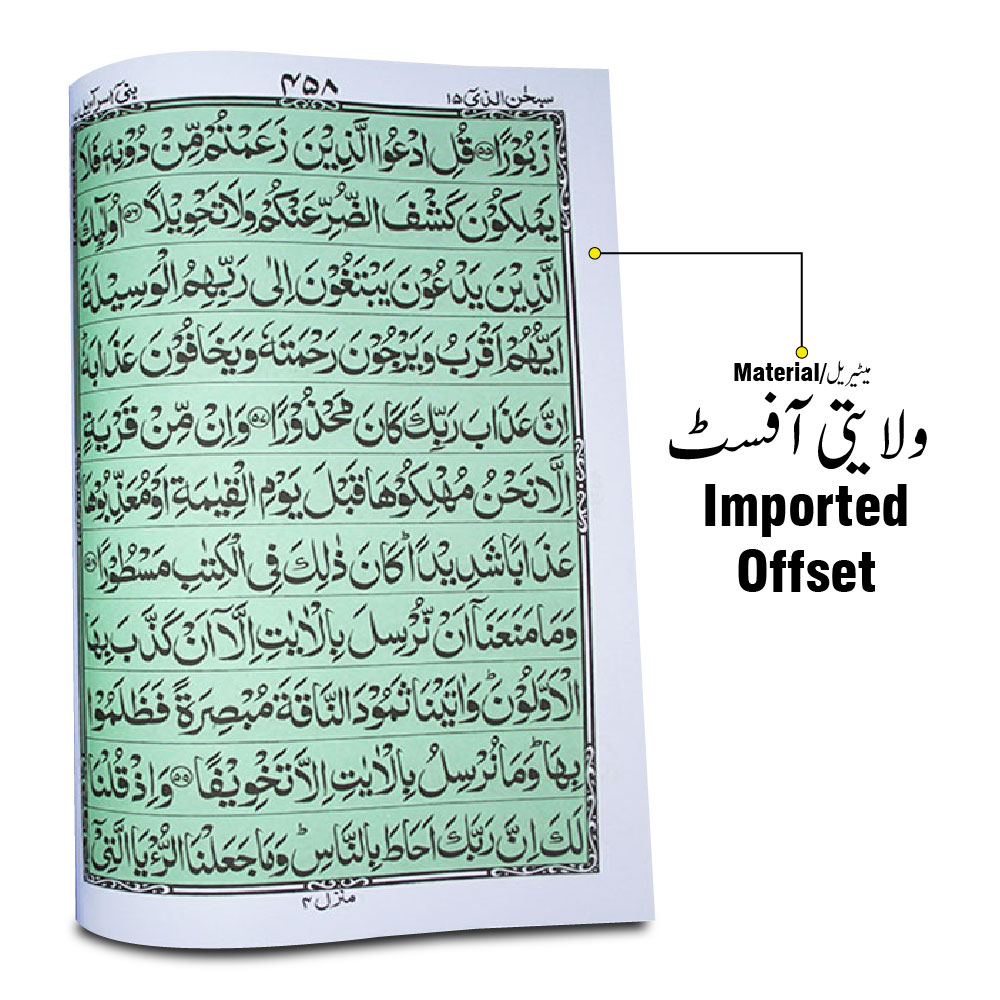 سبحٰن الذیٓ ۱۵
۴۵۸
بنیٓ اسرآءیل
زَبُوْرًا ﴿۵۵﴾ قُلِ ادْعُوا الَّذِيْنَ زَعَمْتُمْ مِّنْ دُوْنِهٖ فَلَا
يَمْلِكُوْنَ كَشْفَ الضُّرِّ عَنْكُمْ وَلَا تَحْوِيْلًا ﴿۵۶﴾ اُولٰٓئِكَ
الَّذِيْنَ يَدْعُوْنَ يَبْتَغُوْنَ اِلٰى رَبِّهِمُ الْوَسِيْلَةَ
اَيُّهُمْ اَقْرَبُ وَيَرْجُوْنَ رَحْمَتَهٗ وَيَخَافُوْنَ عَذَابَهٗ
اِنَّ عَذَابَ رَبِّكَ كَانَ مَحْذُوْرًا ﴿۵۷﴾ وَاِنْ مِّنْ قَرْيَةٍ
اِلَّا نَحْنُ مُهْلِكُوْهَا قَبْلَ يَوْمِ الْقِيٰمَةِ اَوْ مُعَذِّبُوْهَا
عَذَابًا شَدِيْدًا ؕ كَانَ ذٰلِكَ فِى الْكِتٰبِ مَسْطُوْرًا ﴿۵۸﴾
وَمَا مَنَعَنَاۤ اَنْ نُّرْسِلَ بِالْاٰيٰتِ اِلَّاۤ اَنْ كَذَّبَ بِهَا
الْاَوَّلُوْنَ ؕ وَاٰتَيْنَا ثَمُوْدَ النَّاقَةَ مُبْصِرَةً فَظَلَمُوْا
بِهَا ؕ وَمَا نُرْسِلُ بِالْاٰيٰتِ اِلَّا تَخْوِيْفًا ﴿۵۹﴾ وَاِذْ قُلْنَا
لَكَ اِنَّ رَبَّكَ اَحَاطَ بِالنَّاسِ ؕ وَمَا جَعَلْنَا الرُّءْيَا الَّتِىْۤ
منزل ۴
Material/میٹیریل
ولایتی آفسٹ
Imported
Offset